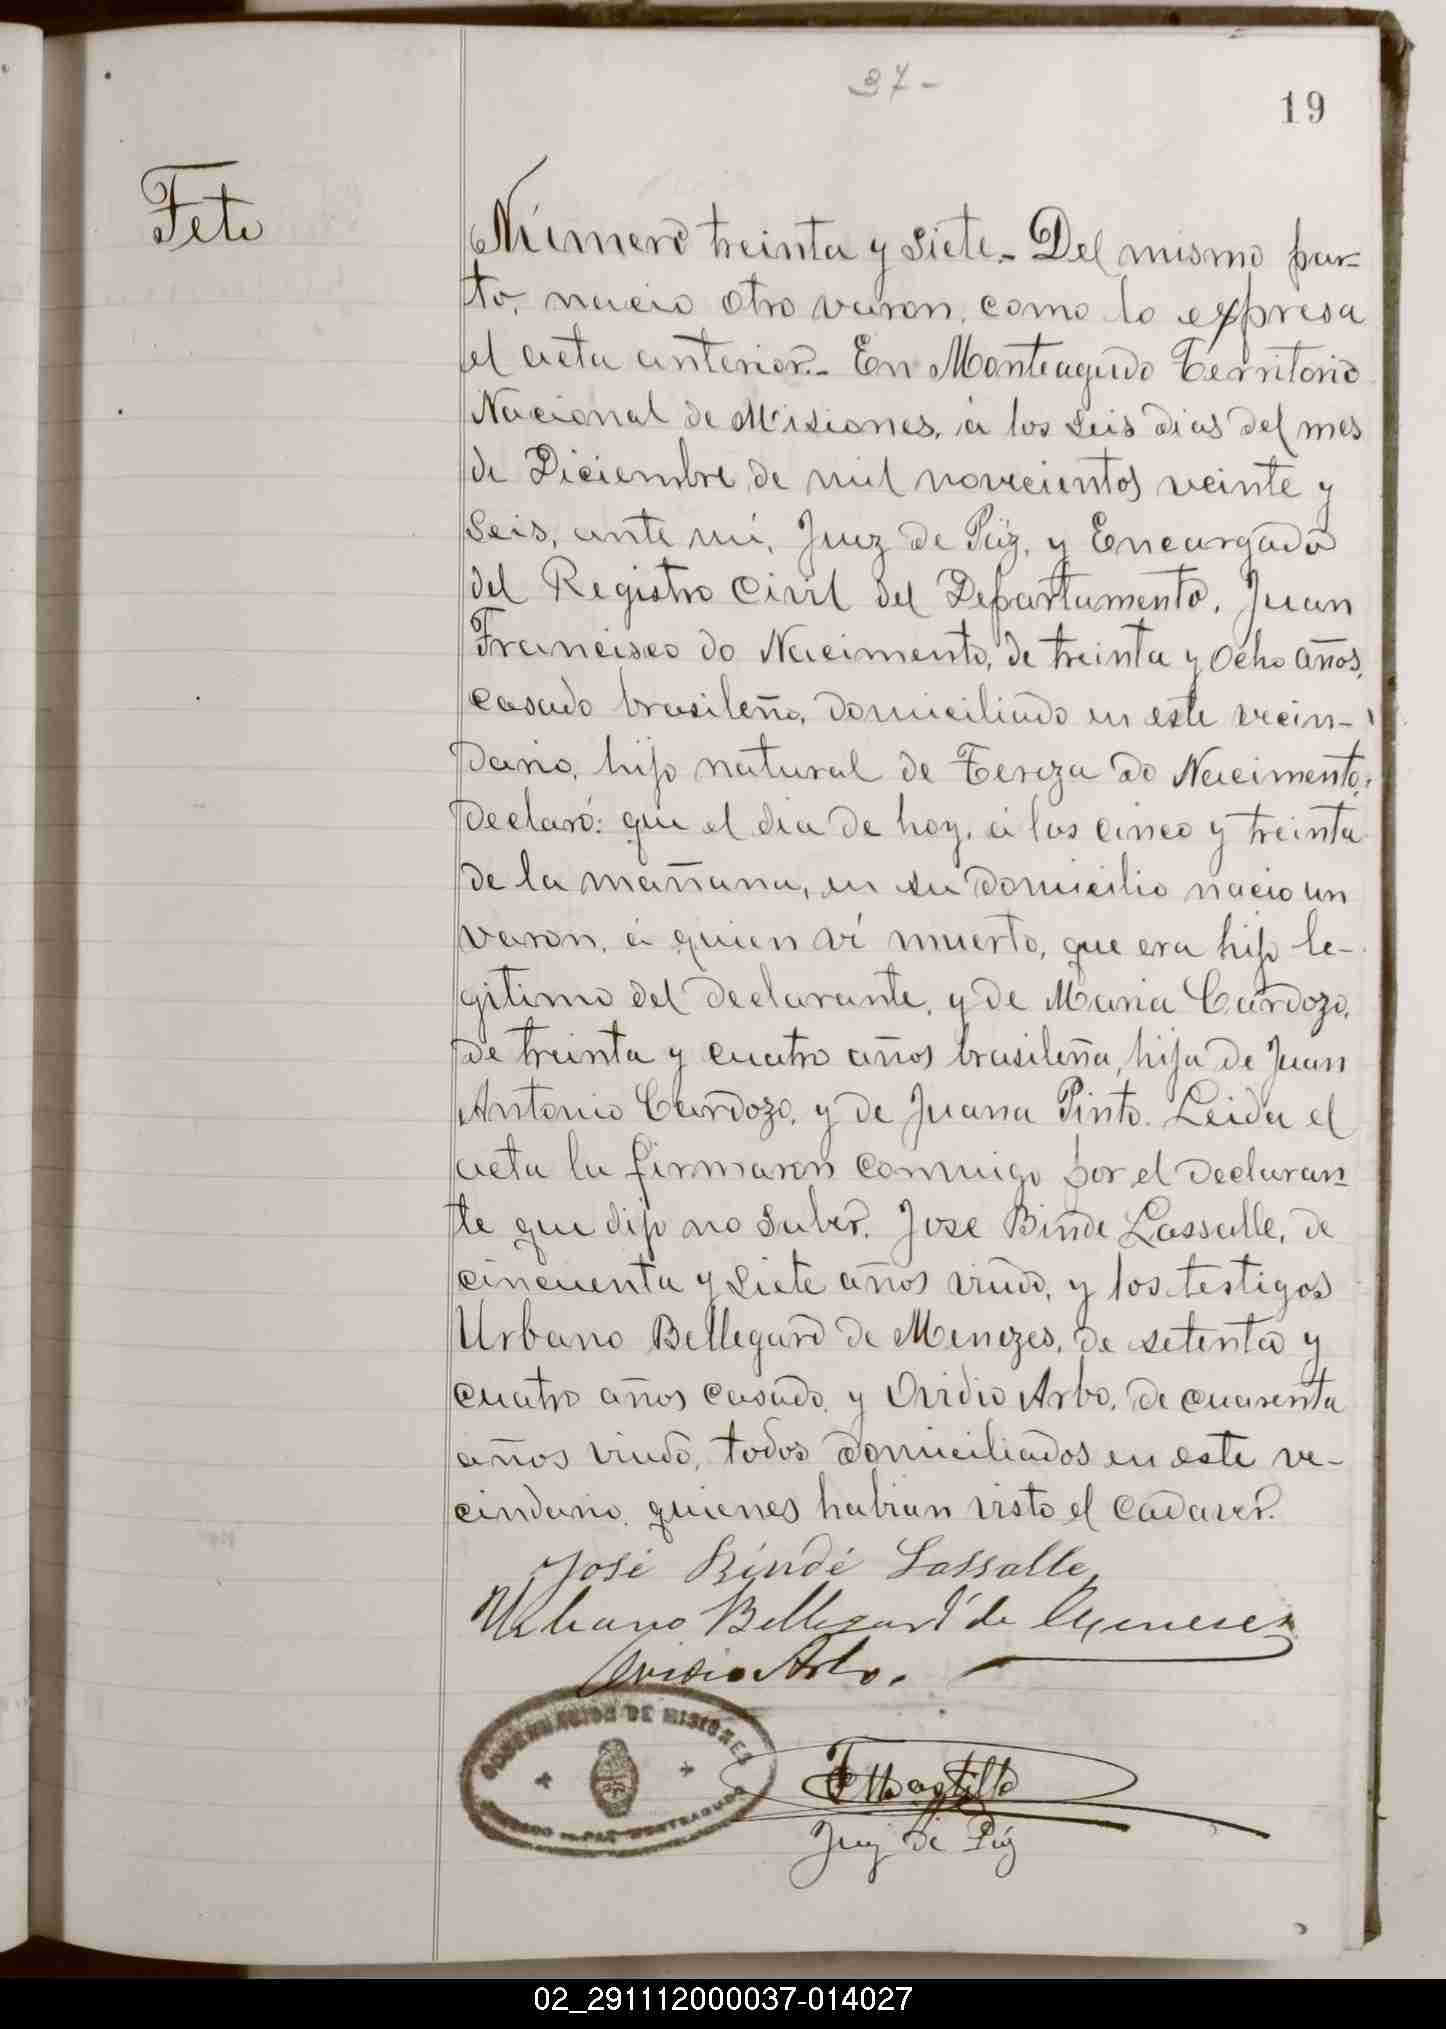 37-
19
Feto
Número treinta y siete.- Del mismo par-
to, nacio otro varon, como lo expresa
el acta anterior.- En Monteagudo Territorio
Nacional de Misiones, á los seis dias del mes
de Diciembre de mil novecientos veinte y
seis, ante mi, Juez de Páz, y Encargado
del Registro Civil del Departamento, Juan
Francisco do Nacimento, de treinta y ocho años,
casado brasileño, domiciliado en este vecin-
dario, hijo natural de Tereza do Nacimento,
declaró: que el dia de hoy, á las cinco y treinta
de la mañana, en su domicilio nacio un
varon, á quien ví muerto, que era hijo le-
gitimo del declarante, y de Maria Cardozo,
de treinta y cuatro años brasileña, hija de Juan
Antonio Cardozo, y de Juana Pinto. Leida el
acta la firmaron conmigo por el declaran-
te que dijo no saber. Jose Binde Lassalle, de
cincuenta y siete años viudo, y los testigos
Urbano Bellegard de Menezes, de setenta y
cuatro años casado, y Ovidio Arbo, de cuarenta
años viudo, todos domiciliados en este ve-
cindario, quienes habian visto el cadaver.
José Bindé Lassalle
Urbano Bellegard de Menezes
Ovidio Arbo.
GOBERNACION DE MISIONES
JUZGADO DE PAZ MONTEAGUDO
Juez de Páz
02_291112000037-014027